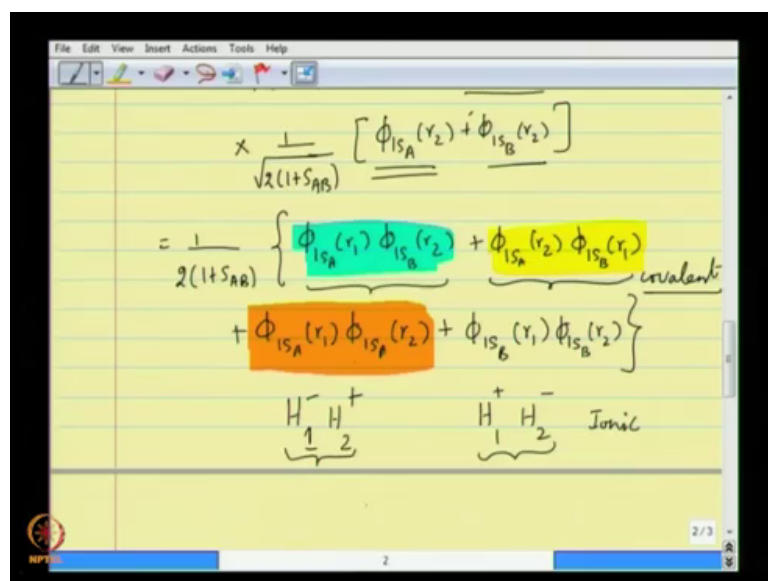 File Edit View Insert Actions Tools Help
× 1/√2(1+S_AB) [ϕ_1s_A(r₂) + ϕ_1s_B(r₂)]
= 1/2(1+S_AB) {ϕ_1s_A(r₁) ϕ_1s_B(r₂) + ϕ_1s_A(r₂) ϕ_1s_B(r₁)
covalent
+ ϕ_1s_A(r₁) ϕ_1s_A(r₂) + ϕ_1s_B(r₁) ϕ_1s_B(r₂)}
H₁⁻ H₂⁺ H₁⁺ H₂⁻ Ionic
2/3
NPTEL
2